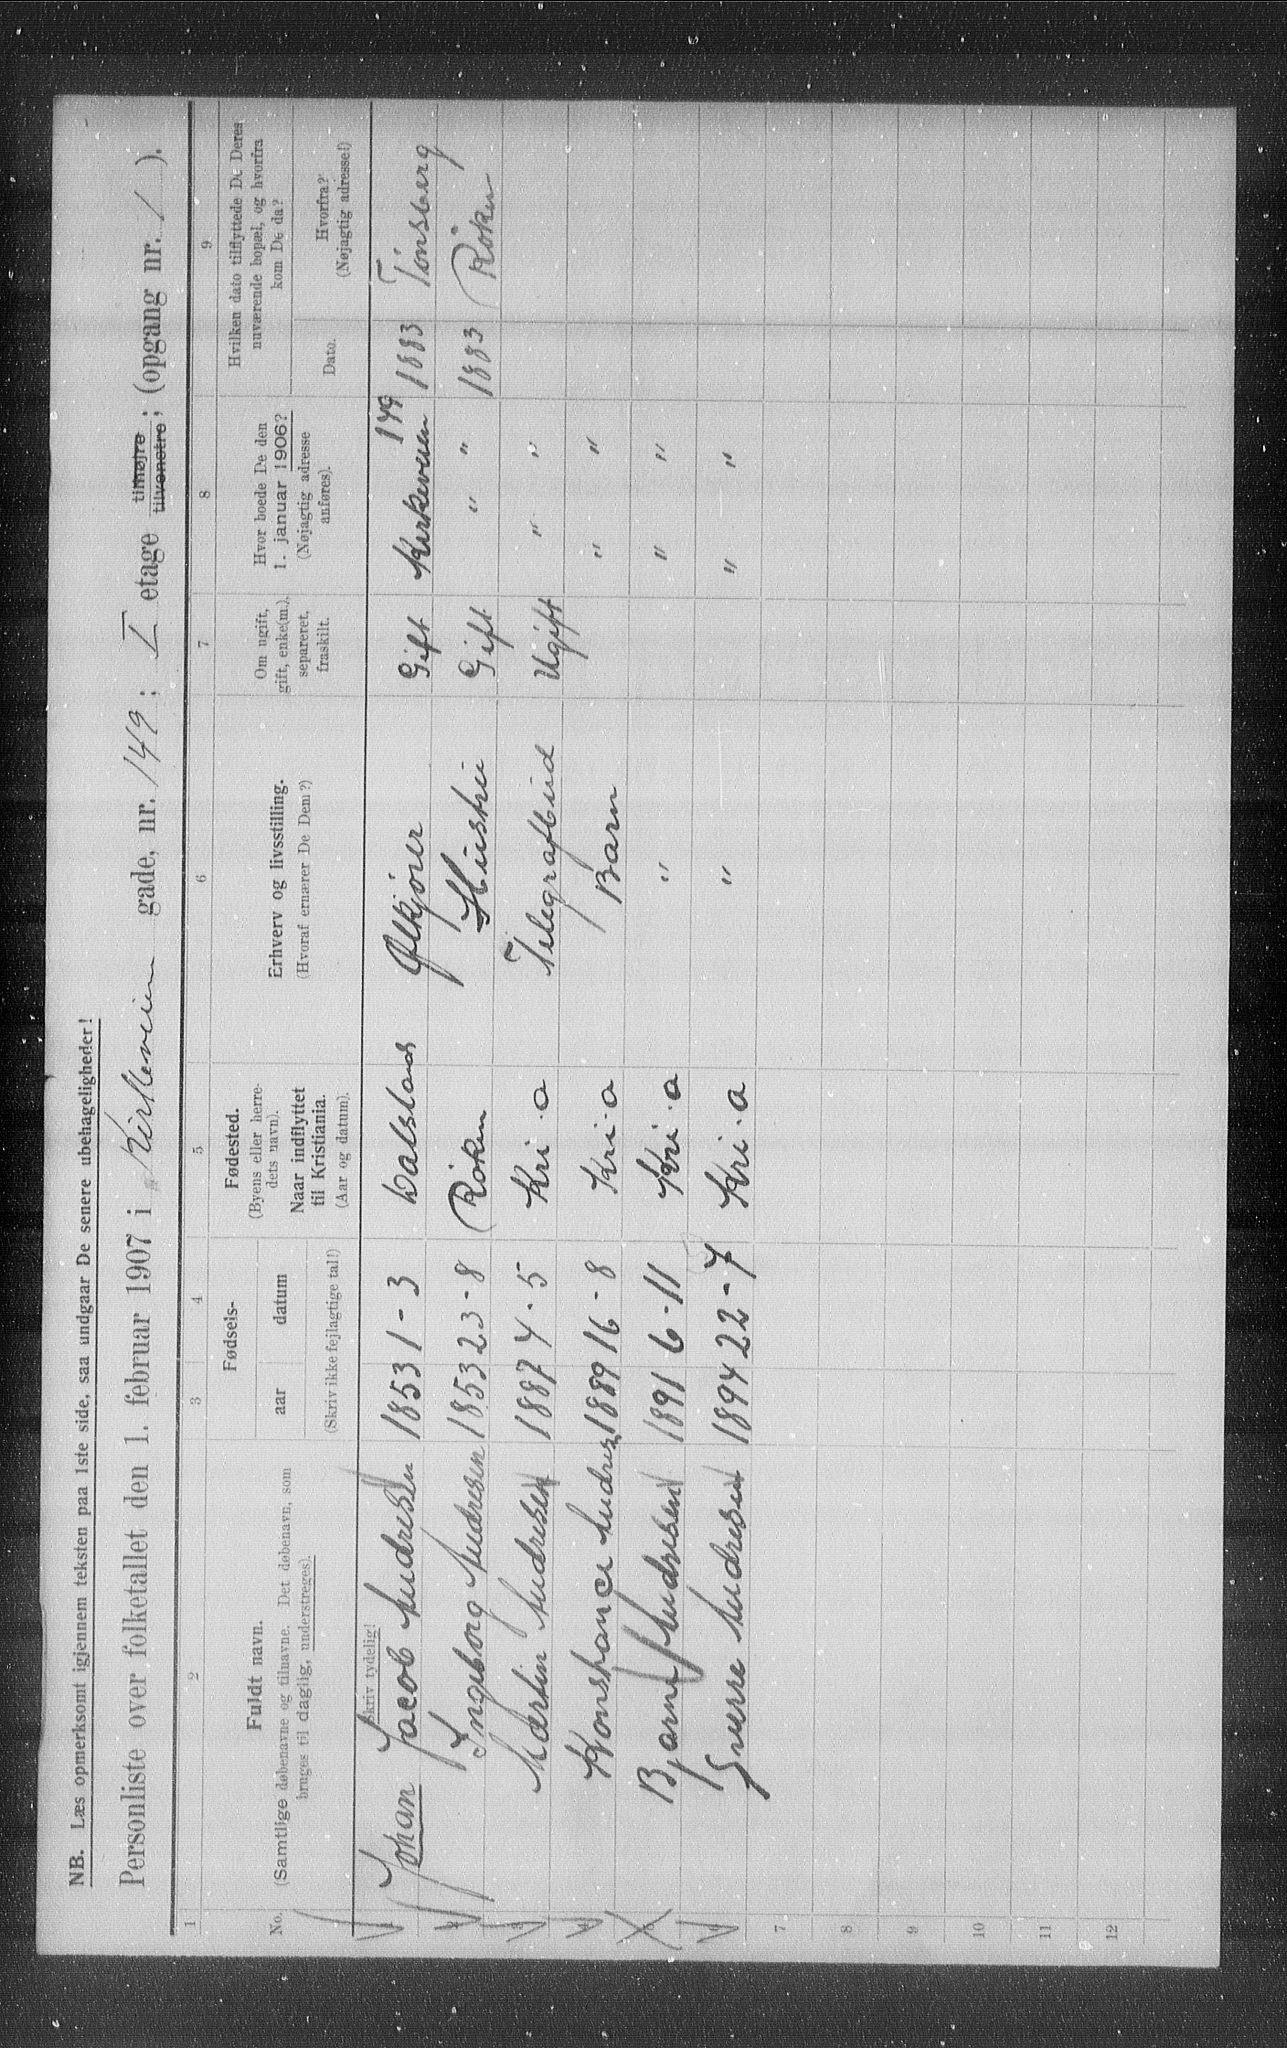 NB. Læs opmerksomt igjennem teksten paa 1ste side, saa undgaar De senere ubehageligheder!
Personliste over folketallet den 1. februar 1907 i Kirkeveien gade, nr. 149; I etage tilhøjre tilvenstre; (opgang nr. 1).
1 2 3 4 5 6 7 8 9
No.
Fuldt navn.
(Samtlige døbenavne og tilnavne. Det døbenavn, som
bruges til daglig, understreges).
Fødsels-
aar datum
(Skriv ikke fejlagtige tal!)
Fødested.
(Byens eller herre-
dets navn).
Naar indflyttet
til Kristiania.
(Aar og datum).
Erhverv og livsstilling.
(Hvoraf ernærer De Dem?)
Om ugift,
gift, enke(m.),
separeret,
fraskilt.
Hvor boede De den
1. januar 1906?
(Nøjagtig adresse
anføres).
Hvilken dato tilflyttede De Deres
nuværende bopæl, og hvorfra
kom De da?
Dato.
Hvorfra?
(Nøjagtig adresse!)
Skriv tydelig!
1 Johan Jacob Andresen 1853 1-3 Ølkjører Gift Kirkeveien 149 1883 Tønsberg
2 Ingeborg Andresen 1853 23-8 Røken Hustru Gift " " 1883 Røken
3 Martin Andresen 1887 4-5 Kri.a Telegrafbud Ugift " "
4 Konstance Andresen 1889 16-8 Kri.a Barn " "
5 Bjarne Andresen 1891 6-11 Kri.a " " "
6 Sverre Andresen 1894 22-7 Kri.a " " "
7
8
9
10
11
12